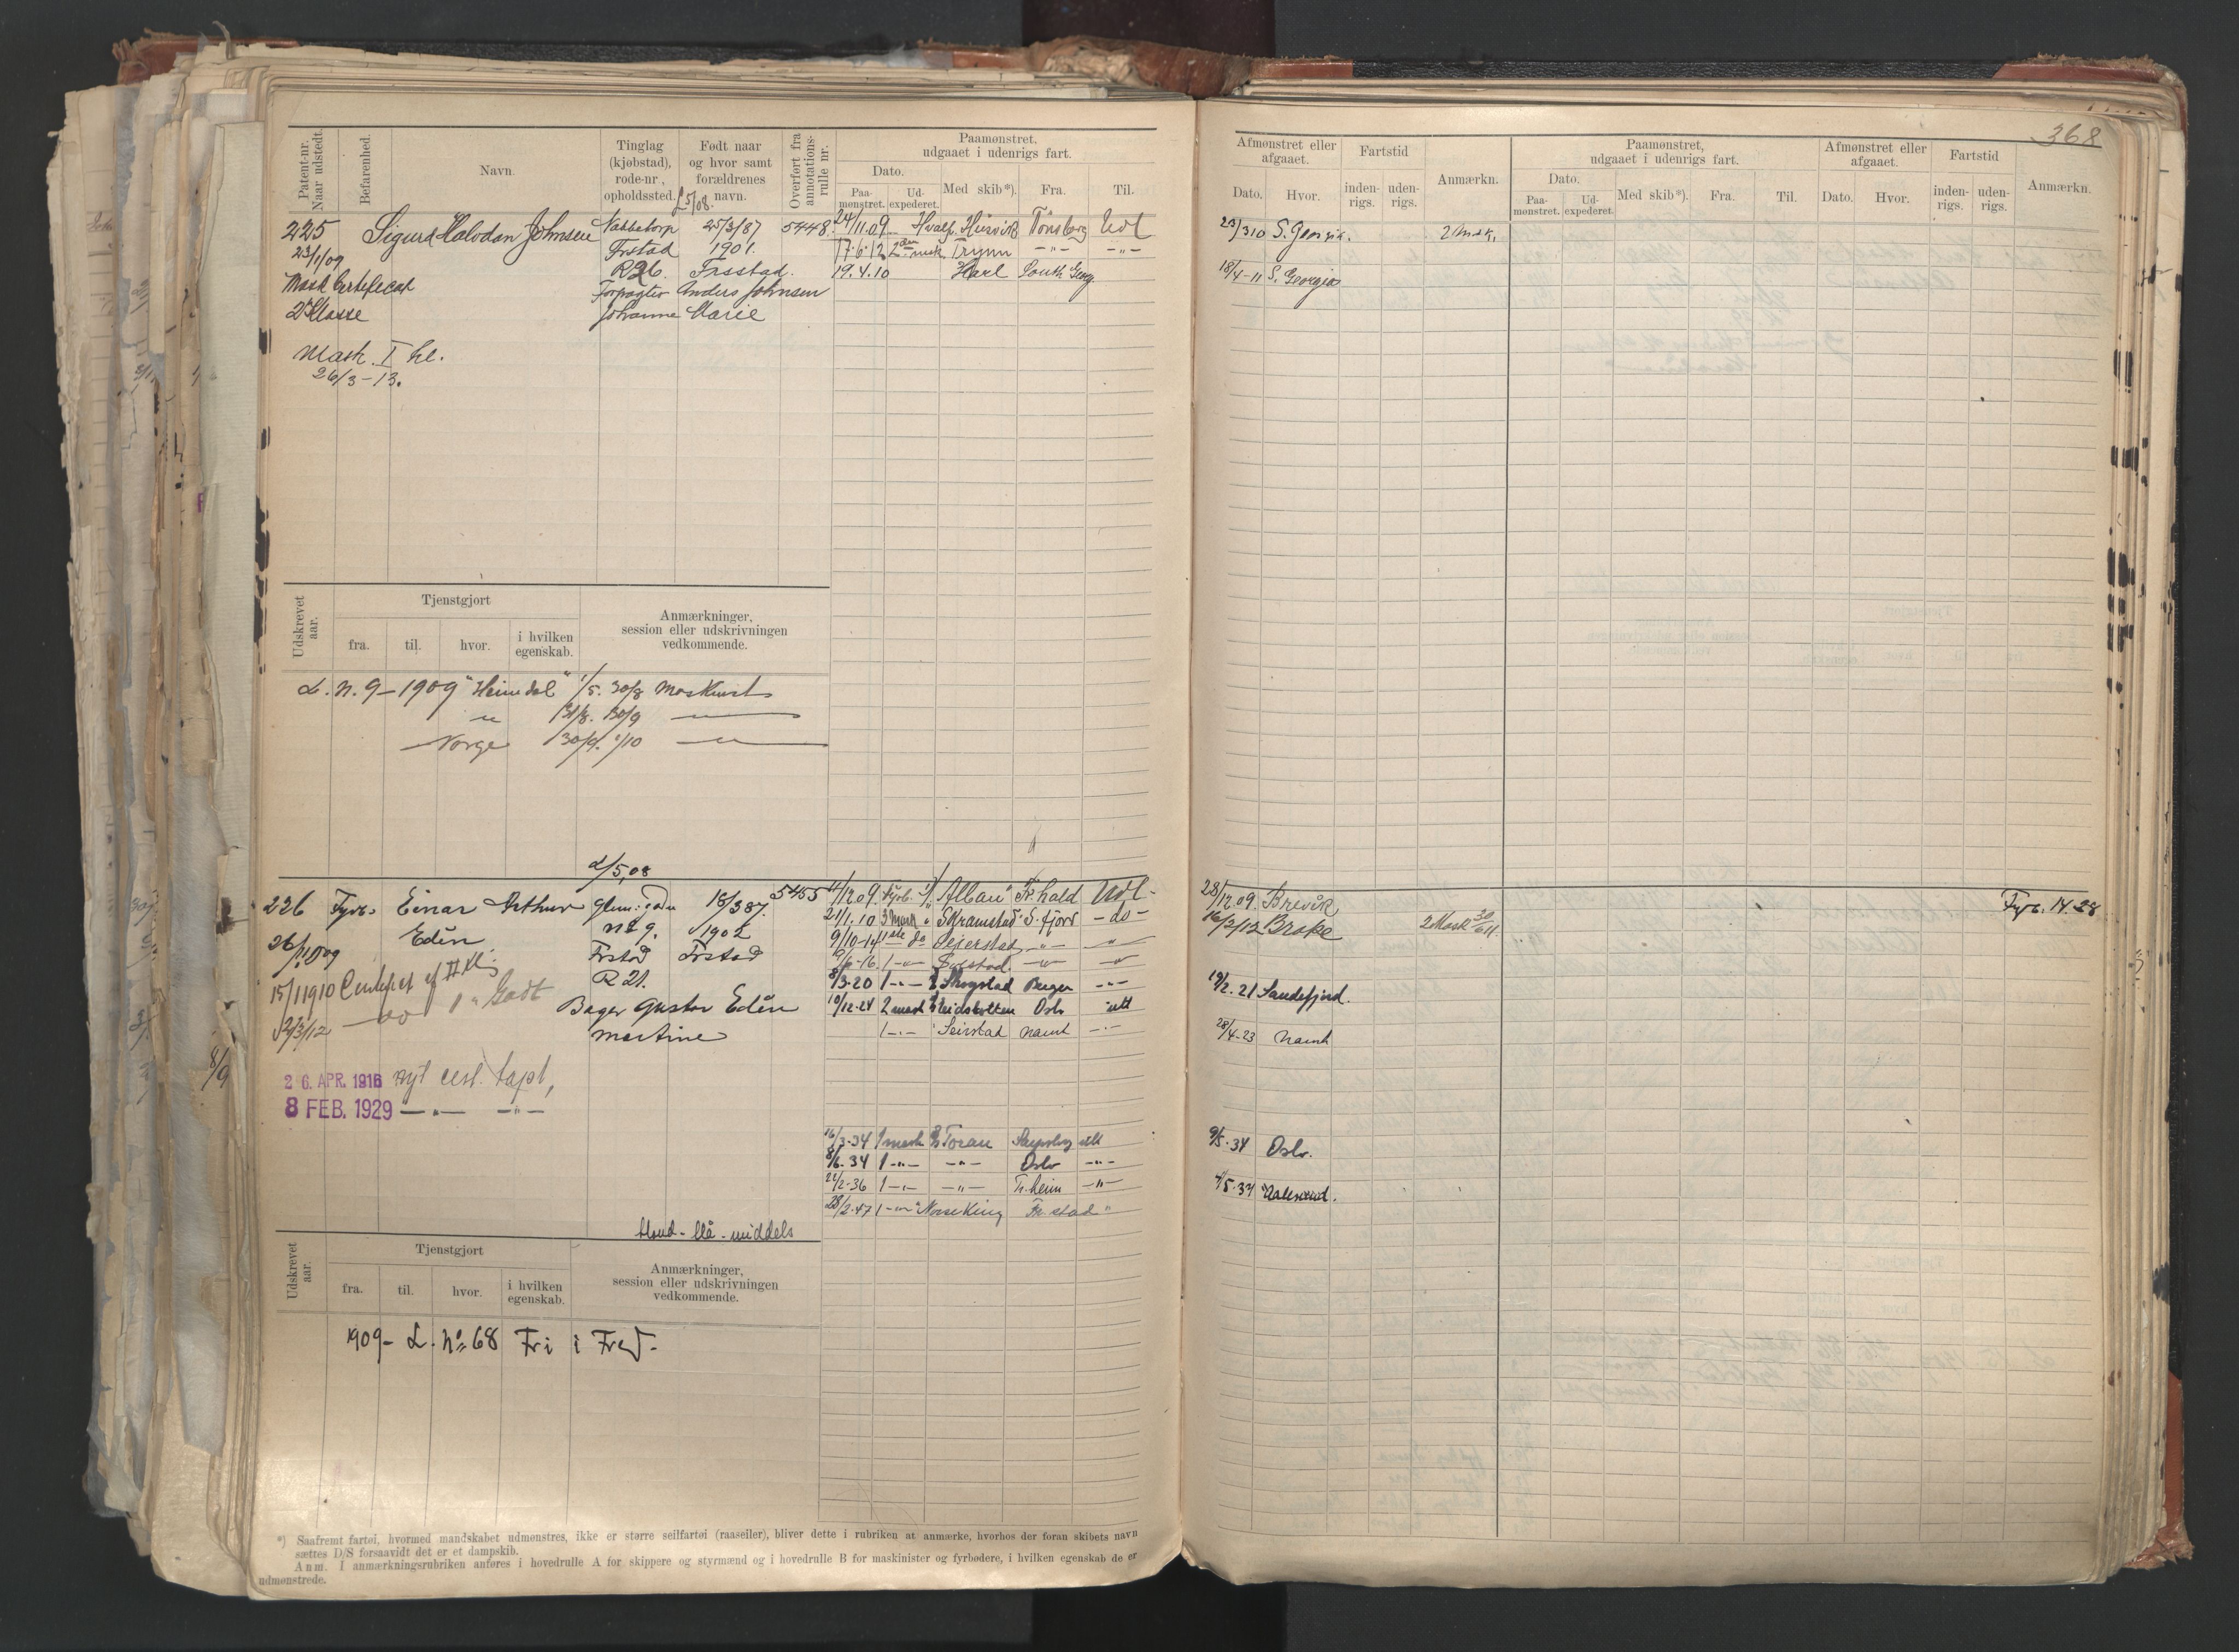 368
Patent-nr. Naar udstedt.
Befarenhed.
Navn.
Tinglag (kjøbstad), rode-nr., opholdssted.
Født naar og hvor samt forældrenes navn.
Overført fra annotations-rulle nr.
Paamønstret, udgaaet i udenrigs fart.
Dato.
Paa-mønstret.
Ud-expederet.
Med skib*).
Fra.
Til.
Afmønstret eller afgaaet.
Dato.
Hvor.
Fartstid
inden-rigs.
uden-rigs.
Anmærkn.
Paamønstret, udgaaet i udenrigs fart.
Dato.
Paa-mønstret.
Ud-expederet.
Med skib*).
Fra.
Til.
Afmønstret eller afgaaet.
Dato.
Hvor.
Fartstid
inden-rigs.
uden-rigs.
Anmærkn.
225 Sigurd Halvdan Johnsen Nabbetorp 25/3/87 5448
23/1/09 Frstad 1901.
R26. Frsstad.
Mask Certeficat Forpagter Anders Johnsen
2 Klasse Johanne Marie
Mask. I kl.
26/3-13.
24/11.09 Hvalf. Husvik Tönsberg Udl
17.6.12 Trym -"- -"-
19.4.10 Karl South Georg.
29/3 10 S. Georgia. 2 Mask.
18/4-11 S. Georgia
Udskrevet aar.
Tjenstgjort
fra.
til.
hvor.
i hvilken egenskab.
Anmærkninger, session eller udskrivningen vedkommende.
L. n. 9-1909 "Heimdal" 1/5. 30/8 Maskinist
" 31/8. 30/9 "
Norge 30/9. "
2/5,08
226 Fyrb. Einar Arthur 18/3 87. 5455
Edén n:t 9. 1902
26/11 09 Frstad Frstad
15/11910 Certefict af II Kl R 21.
Bager Gustav Edén
2/3/12 -do- 1 " Godt Martine
26. APR. 1916 Nyt cert. tapt,
8 FEB. 1929 -"- -"-
4/12 09. Fyrb. "Alban" Fr.hald Udl-
21/1.10 3 Mask " Skramstad" S.fjord -do-
9/10-14 1ste do Seierstad -"- "
1-"- -"- "
8/3-20 1-"- Skogstad Bergen -"-
10/12-24 2 mask Oslo utl
1-"- "Seirstad Namt -"-
16/3-34 1 mask Toran Sarpsborg utl
8/6-34 1-"- -"- Oslo -"-
22/2-36 1-"- -"- Tr.heim -"-
28/2-47 1-"- "Norse King Fr.stad "
28/12.09. Brevik Fyrb. 14.28
16/2/12 Brake 2 Mask
19/2.21 Sandefjord.
28/4-23 Namt
9/5.34 Oslo.
4/5.37 Aalesund.
blond - blå - middels
Udskrevet aar.
Tjenstgjort
fra.
til.
hvor.
i hvilken egenskab.
Anmærkninger, session eller udskrivningen vedkommende.
1909- L. No 68 Fri i Fred-
*) Saafremt fartøi, hvormed mandskabet udmønstres, ikke er større seilfartøi (raaseiler), bliver dette i rubriken at anmærke, hvorhos der foran skibets navn
sættes D/S forsaavidt det er et dampskib.
Anm. I anmærkningsrubriken anføres i hovedrulle A for skippere og styrmænd og i hovedrulle B for maskinister og fyrbødere, i hvilken egenskab de er
udmønstrede.